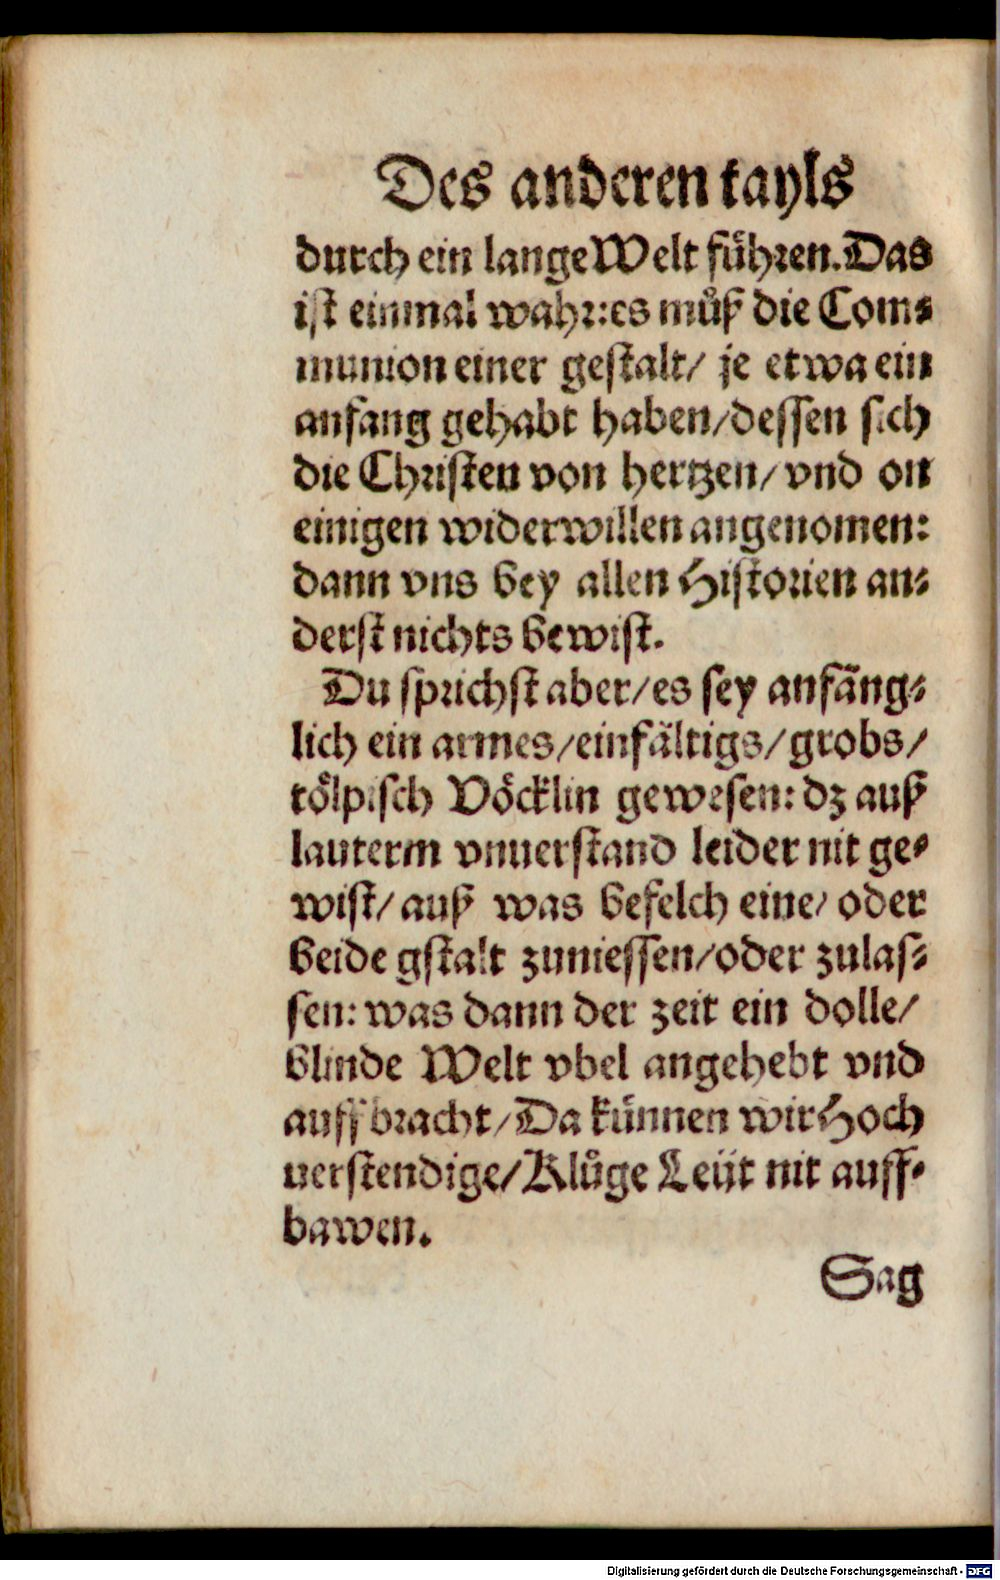 Des anderen tayls
durch ein lange Welt führen. Das
ist einmal wahr: es můß die Com⸗
munion einer gestalt/ je etwa ein
anfang gehabt haben/ dessen sich
die Christen von hertzen/ vnd on
einigen widerwillen angenomen:
dann vns bey allen Historien an⸗
derst nichts bewist.
Du sprichst aber/ es sey anfäng⸗
lich ein armes/ einfältigs/ grobs/
tölpisch Vöcklin gewesen: dz auß
lauterm vnuerstand leider nit ge⸗
wist/ auß was befelch eine/ oder
beide gstalt zuniessen/ oder zulas⸗
sen: was dann der zeit ein dolle/
blinde Welt vbel angehebt vnd
auffbracht/ Da künnen wir Hoch
uerstendige/ Klůge Leüt nit auff⸗
bawen.
Sag
Digitalisierung gefördert durch die Deutsche Forschungsgemeinschaft - DFG